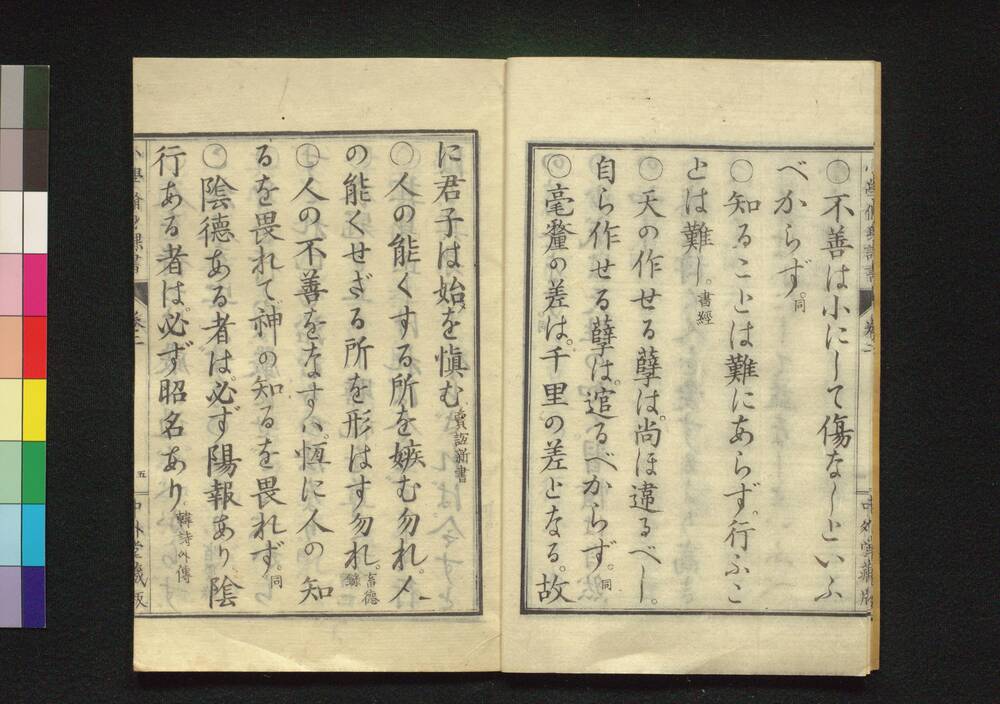 〇不善は小にして傷なしといふ
べからず。同
〇知ることは難にあらず。行ふこ
とは難し。書經
〇天の作せる孽は。尚ほ違るべし。
自ら作せる孽は。逭るべからず。同
〇毫釐の差は。千里の差となる。故
に君子は始めを愼む 賈誼新書
〇人の能くする所を嫉む勿れ。人
の能くせざる所を形はす勿れ。畜德錄
〇人の不善をなすハ。恆に人の知
るを畏れて。神の知るを畏れず。同
〇陰德ある者は。必ず陽報あり。陰
行ある者は。必ず昭名あり 韓詩外傳
卷二
五
中外堂藏版